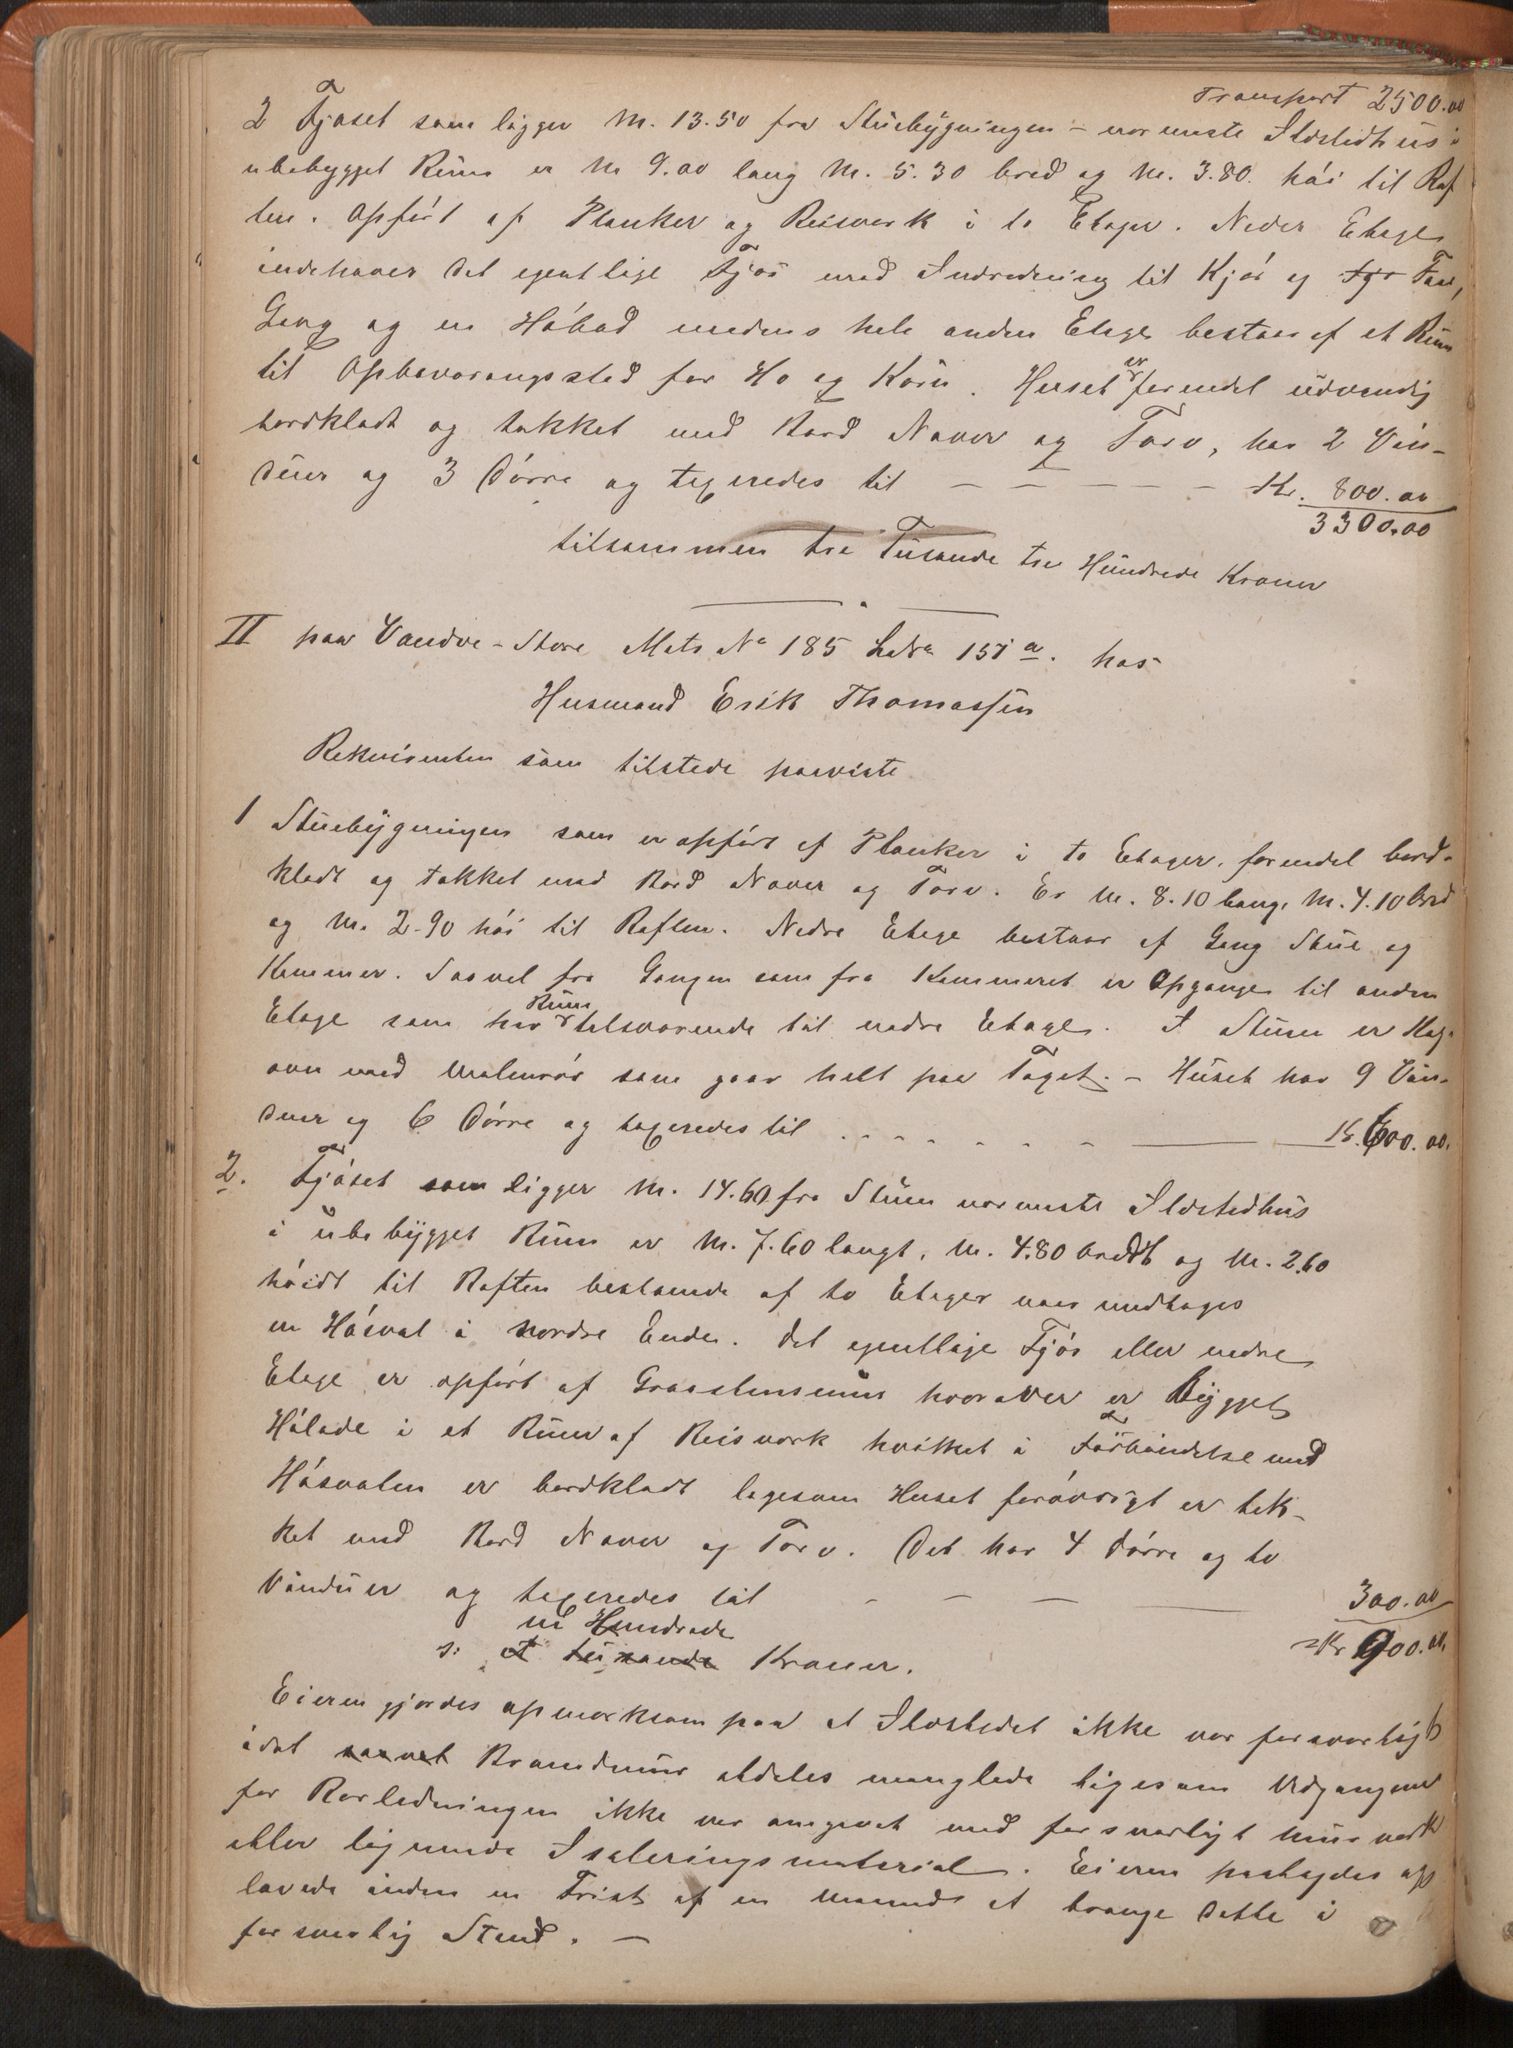 Transport 2500.00
2 Fjøset som ligger M. 13.50 fra Stuebygningen – nærmeste Ildstedhus i
ubebygget Rum er M 9.00 lang M. 5.30 bred og M. 3.80. hói til Raf
ten. Opfórt af Planker og Reisverk i to Etager. Neder Etage
indehaver det egentlige Fjós med Indredning til Kjór og Faar,
Gang og en Hóbod medens hele anden Etage bestaar af et Rum
til Opbevaringssted for Hó og Korn. Huset er forendel udvendig
bordklædt og tækket med Bord Næver og Torv, har 2 Vin-
duer og 3 Dórre og taxeredes til – – – – – Kr. 800.00
3300.00
tilsammen tre Tusende tre Hundrede Kroner
II paa Vandve-Store Mats No 185 LNo 157 a. hos
Husmand Erik Thomassen
Rekvirenten som tilstede paaviste
1 Stuebygningen som er opfórt af Planker i to Etager, forendel bord-
klædt og tækket med Bord Næver og Torv. Er M. 8.10 lang, M. 4.10 bred
og M. 2.90 hói til Raften. Nedre Etage bestaar af Gang Stue og
Kammer. Saavel fra Gangen som fra Kammeret er Opgange til anden
Etage som har Rum tilsvarende til nedre Etage. I Stuen er Kog-
ovn med Malmrór som gaar helt paa Taget. – Huset har 9 Vin-
duer og 6 Dórre og taxeredes til . . - - - - - Kr. 600.00.
2. Fjóset som ligger M. 14.60 fra Stuen nærmeste Ildstedhus
i ubebygget Rum er M. 7.60 langt, M. 4.80 bredt og M. 2.60
hóidt til Raften bestaaende af to Etager naar undtages
en Hósval i nordre Ende. Det egentlige Fjós eller nedre
Etage er opfórt af Graastensmur hvorover er bygget
Hólade i et Rum af Reisverk hvilket i Forbindelse med
Hósvalen er bordklædt ligesom Huset forövrigt er tæk-
ket med Bord Næver og Torv. Det har 4 Dórre og to
Vinduer og taxeredes til – – – 300.00
ni Hundrede
Kr 900.00.
s: et tusende Kroner.
Eieren gjordes opmærksom paa at Ildstedet ikke var forsvarligt
idet saavel Brandmur aldeles manglede ligesom Udgangene
for Rórledningen ikke var omgivet med forsvarligt Murværk
eller lignende Isoleringsmaterial. Eieren
lovede inden en Frist af en Maaned at bringe dette i
forsvarlig Stand. –